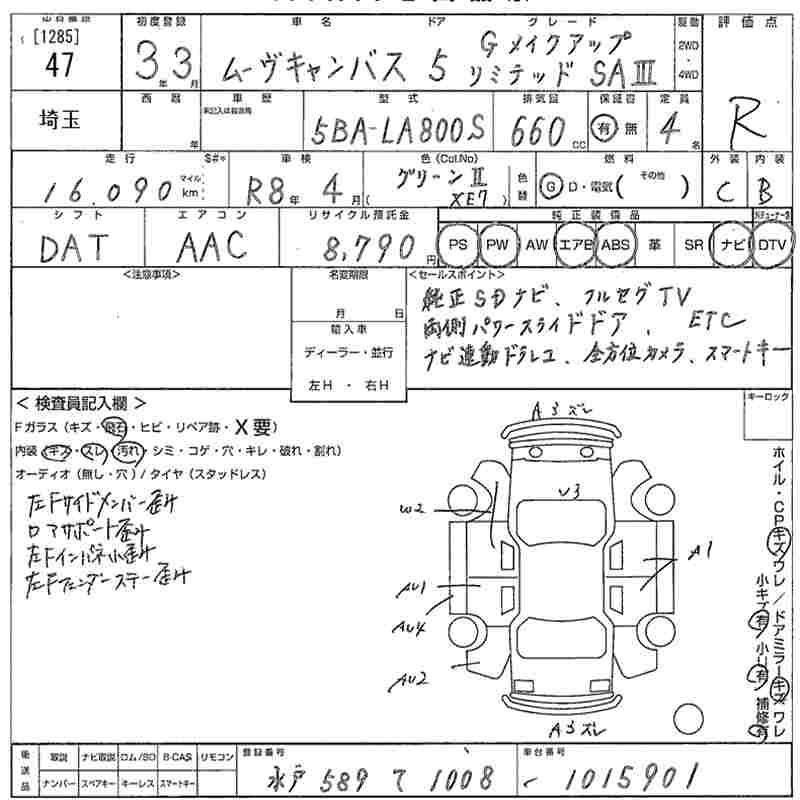 [1285]
47
初度登録
3年3月
車名
ムーヴキャンバス
ドア
5
グレード
G メイクアップ
リミテッド SAⅢ
駆動
2WD
・
4WD
評価点
R
埼玉
西暦
年
車歴
型式
5BA-LA800S
排気量
660cc
保証書
有 無
定員
4名
走行
16,090
マイル
km
S#*
車検
R8年4月
色(Col.No)
グリーンⅡ
(XE7)
色替
燃料
G D・電気( その他 )
外装
C
内装
B
シフト
DAT
エアコン
AAC
リサイクル預託金
8,790円
純正装備品
PS PW AW エアB ABS 革 SR ナビ DTV
<注意事項>
名変期限
月 日
輸入車
ディーラー・並行
左H ・ 右H
<セールスポイント>
純正SDナビ、フルセグTV
両側パワースライドドア、ETC
ナビ連動ドラレコ、全方位カメラ、スマートキー
<検査員記入欄>
Fガラス(キズ・飛石・ヒビ・リペア跡・X要)
内装(キズ・スレ・汚れ・シミ・コゲ・穴・キレ・破れ・割れ)
オーディオ(無し・穴)/タイヤ(スタッドレス)
左Fサイドメンバー歪み
ロアサポート歪み
左Fインパネ小歪み
左Fフェンダーステー歪み
キーロック
A3ズレ
U3
W2
A1
AU1
AU4
AU2
A3ズレ
ホイル・CPキズワレ/ドアミラーキズワレ
小キズ有 小U有 補修有
後送品
取説 ナビ取説 ロム/SD B-CAS リモコン
ナンバー スペアキー キーレス スマートキー
登録番号
水戸 589 て 1008
車台番号
- 1015901